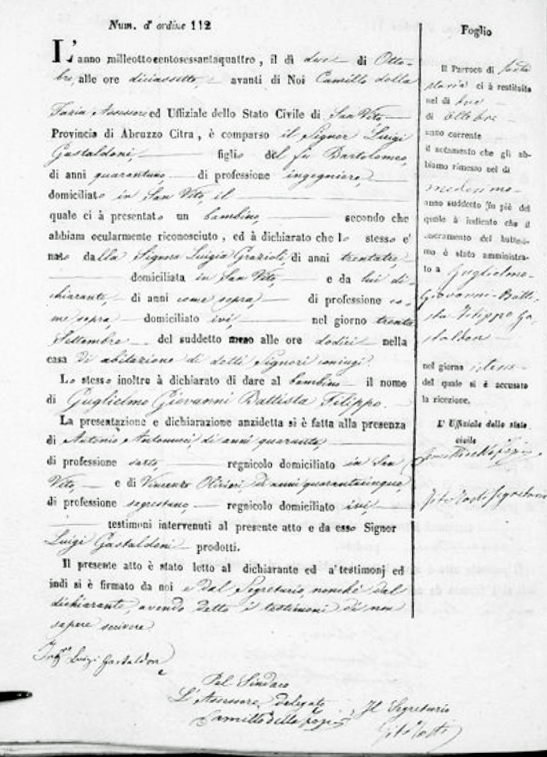 Num. d'ordine 112
L'anno milleottocentosessantaquattro, il dì due di Otto-
bre, alle ore diciassette, avanti di Noi Camillo della
Assessore ed Uffiziale dello Stato Civile di San Vito
Provincia di Abruzzo Citra, è comparso il Signor Luigi
Gastaldoni, figlio del fu Bartolomeo,
di anni quarantuno di professione ingegniere,
domiciliato in San Vito, il
quale ci à presentato un bambino, secondo che
abbiam ocularmente riconosciuto, ed à dichiarato che lo stesso e'
nato dalla Signora Luigia Grazioli, di anni trentatre,
domiciliata in San Vito, e da lui di-
chiarante, di anni come sopra, di professione co-
me sopra, domiciliato ivi, nel giorno trenta
Settembre del suddetto alle ore dodici nella
casa di abitazione di detti Signori coniugi.
Lo stesso inoltre à dichiarato di dare al bambino il nome
di Guglielmo Giovanni Battista Filippo.
La presentazione e dichiarazione anzidetta si è fatta alla presenza
di Antonio Antonucci, di anni quaranta,
di professione sarto, regnicolo domiciliato in San
Vito e di Vincenzo Olivieri, di anni quarantacinque,
di professione sagrestano regnicolo domiciliato ivi
testimoni intervenuti al presente atto e da esso Signor
Luigi Gastaldoni prodotti.
Il presente atto è stato letto al dichiarante ed a' testimonj ed
indi si è firmato da noi e dal Segretario, nonchè dal
dichiarante, avendo detto i testimoni di non
sapere scrivere
Luigi Gastaldoni
Pel Sindaco
L'Assessore delegato
Camillo della
Il Segretario
Vito
Foglio
Il Parroco di
ci à restituito
nel dì due
di Ottobre
anno corrente
il notamento che gli ab-
biamo rimesso nel dì
medesimo
anno suddetto in piè del
quale à indicato che il
sacramento del battesi-
mo è stato amministra-
to a Guglielmo
Giovanni Batti-
sta Filippo Ga-
staldoni
nel giorno
del quale si è accusato
la ricezione.
L' Uffiziale dello stato
civile
Segretario